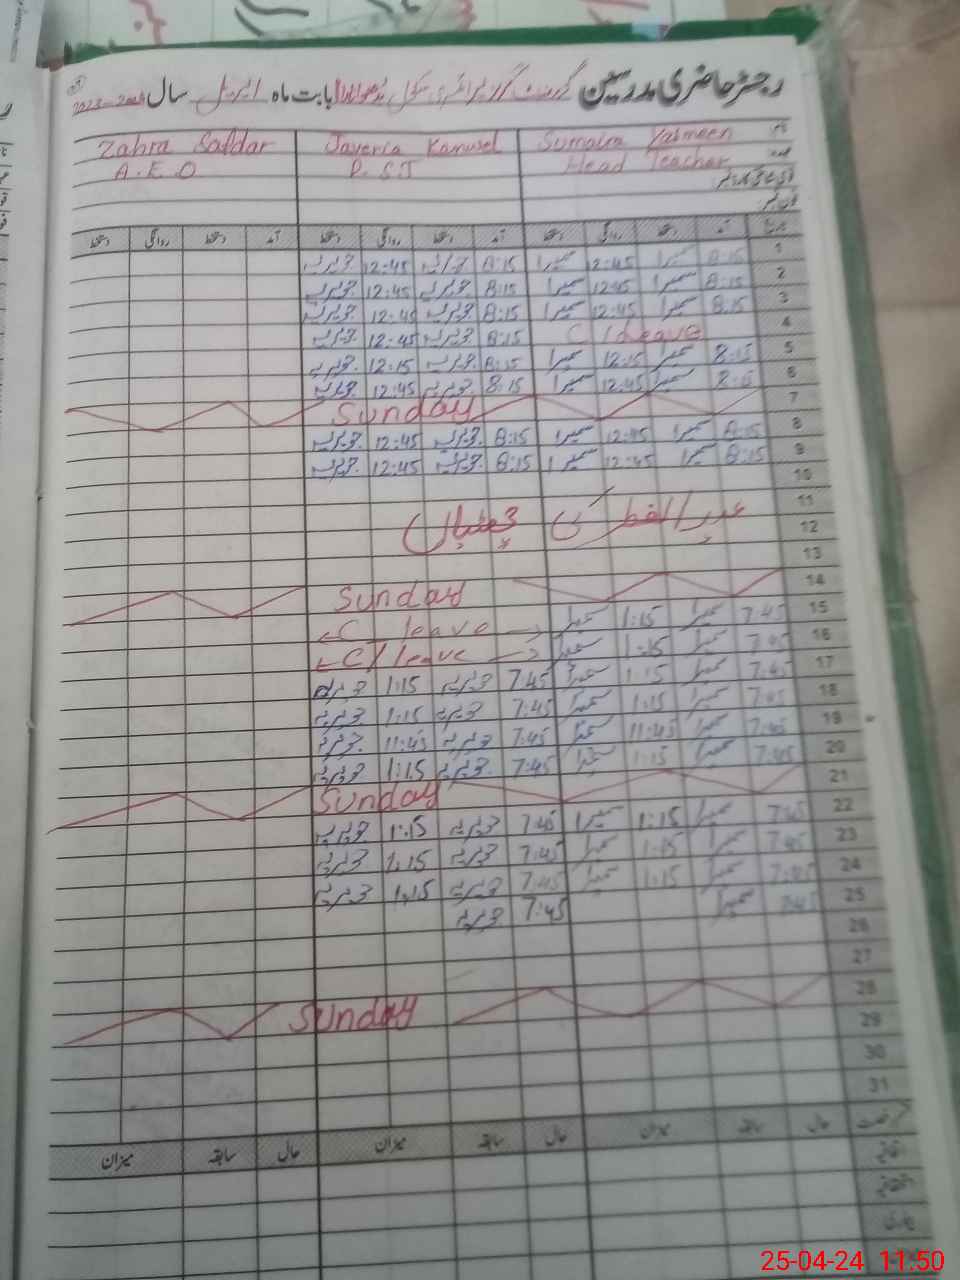 رجسٹر حاضری مدرسین گورنمنٹ گرلز پرائمری سکول بابت ماہ اپریل سال
نام Sumaira Yasmeen Javeria Kanwal Zahra Safdar
عہدہ Head Teacher P.ST A.E.O
شناختی کارڈ نمبر:
فون نمبر:
تاریخ آمد دستخط روانگی دستخط آمد دستخط روانگی دستخط آمد دستخط روانگی دستخط
1 8:15 سمیرا 12:45 سمیرا 8:15 جویریہ 12:45 جویریہ
2 8:15 سمیرا 12:45 سمیرا 8:15 جویریہ 12:45 جویریہ
3 8:15 سمیرا 12:45 سمیرا 8:15 جویریہ 12:45 جویریہ
4 C/Leave 8:15 جویریہ 12:45 جویریہ
5 8:15 سمیرا 12:15 سمیرا 8:15 جویریہ 12:15 جویریہ
6 8:15 سمیرا 12:45 سمیرا 8:15 جویریہ 12:45 جویریہ
7 Sunday
8 8:15 سمیرا 12:45 سمیرا 8:15 جویریہ 12:45 جویریہ
9 8:15 سمیرا 12:45 سمیرا 8:15 جویریہ 12:45 جویریہ
10
11
عید الفطر کی چھٹیاں
12
13
14 Sunday
15 7:45 سمیرا 1:15 سمیرا C leave
16 7:45 سمیرا 1:15 سمیرا C/leave
17 7:45 سمیرا 1:15 سمیرا 7:45 جویریہ 1:15 جویریہ
18 7:45 سمیرا 1:15 سمیرا 7:45 جویریہ 1:15 جویریہ
19 7:45 سمیرا 11:45 سمیرا 7:45 جویریہ 11:45 جویریہ
20 7:45 سمیرا 1:15 سمیرا 7:45 جویریہ 1:15 جویریہ
21 Sunday
22 7:45 سمیرا 1:15 سمیرا 7:45 جویریہ 1:15 جویریہ
23 7:45 سمیرا 1:15 سمیرا 7:45 جویریہ 1:15 جویریہ
24 7:45 سمیرا 1:15 سمیرا 7:45 جویریہ 1:15 جویریہ
25 7:45 سمیرا 7:45 جویریہ
26
27
28 Sunday
29
30
31
رخصت حال سابقہ میزان حال سابقہ میزان حال سابقہ میزان
اتفاقیہ
استحقاقیہ
بیماری
25-04-24 11:50